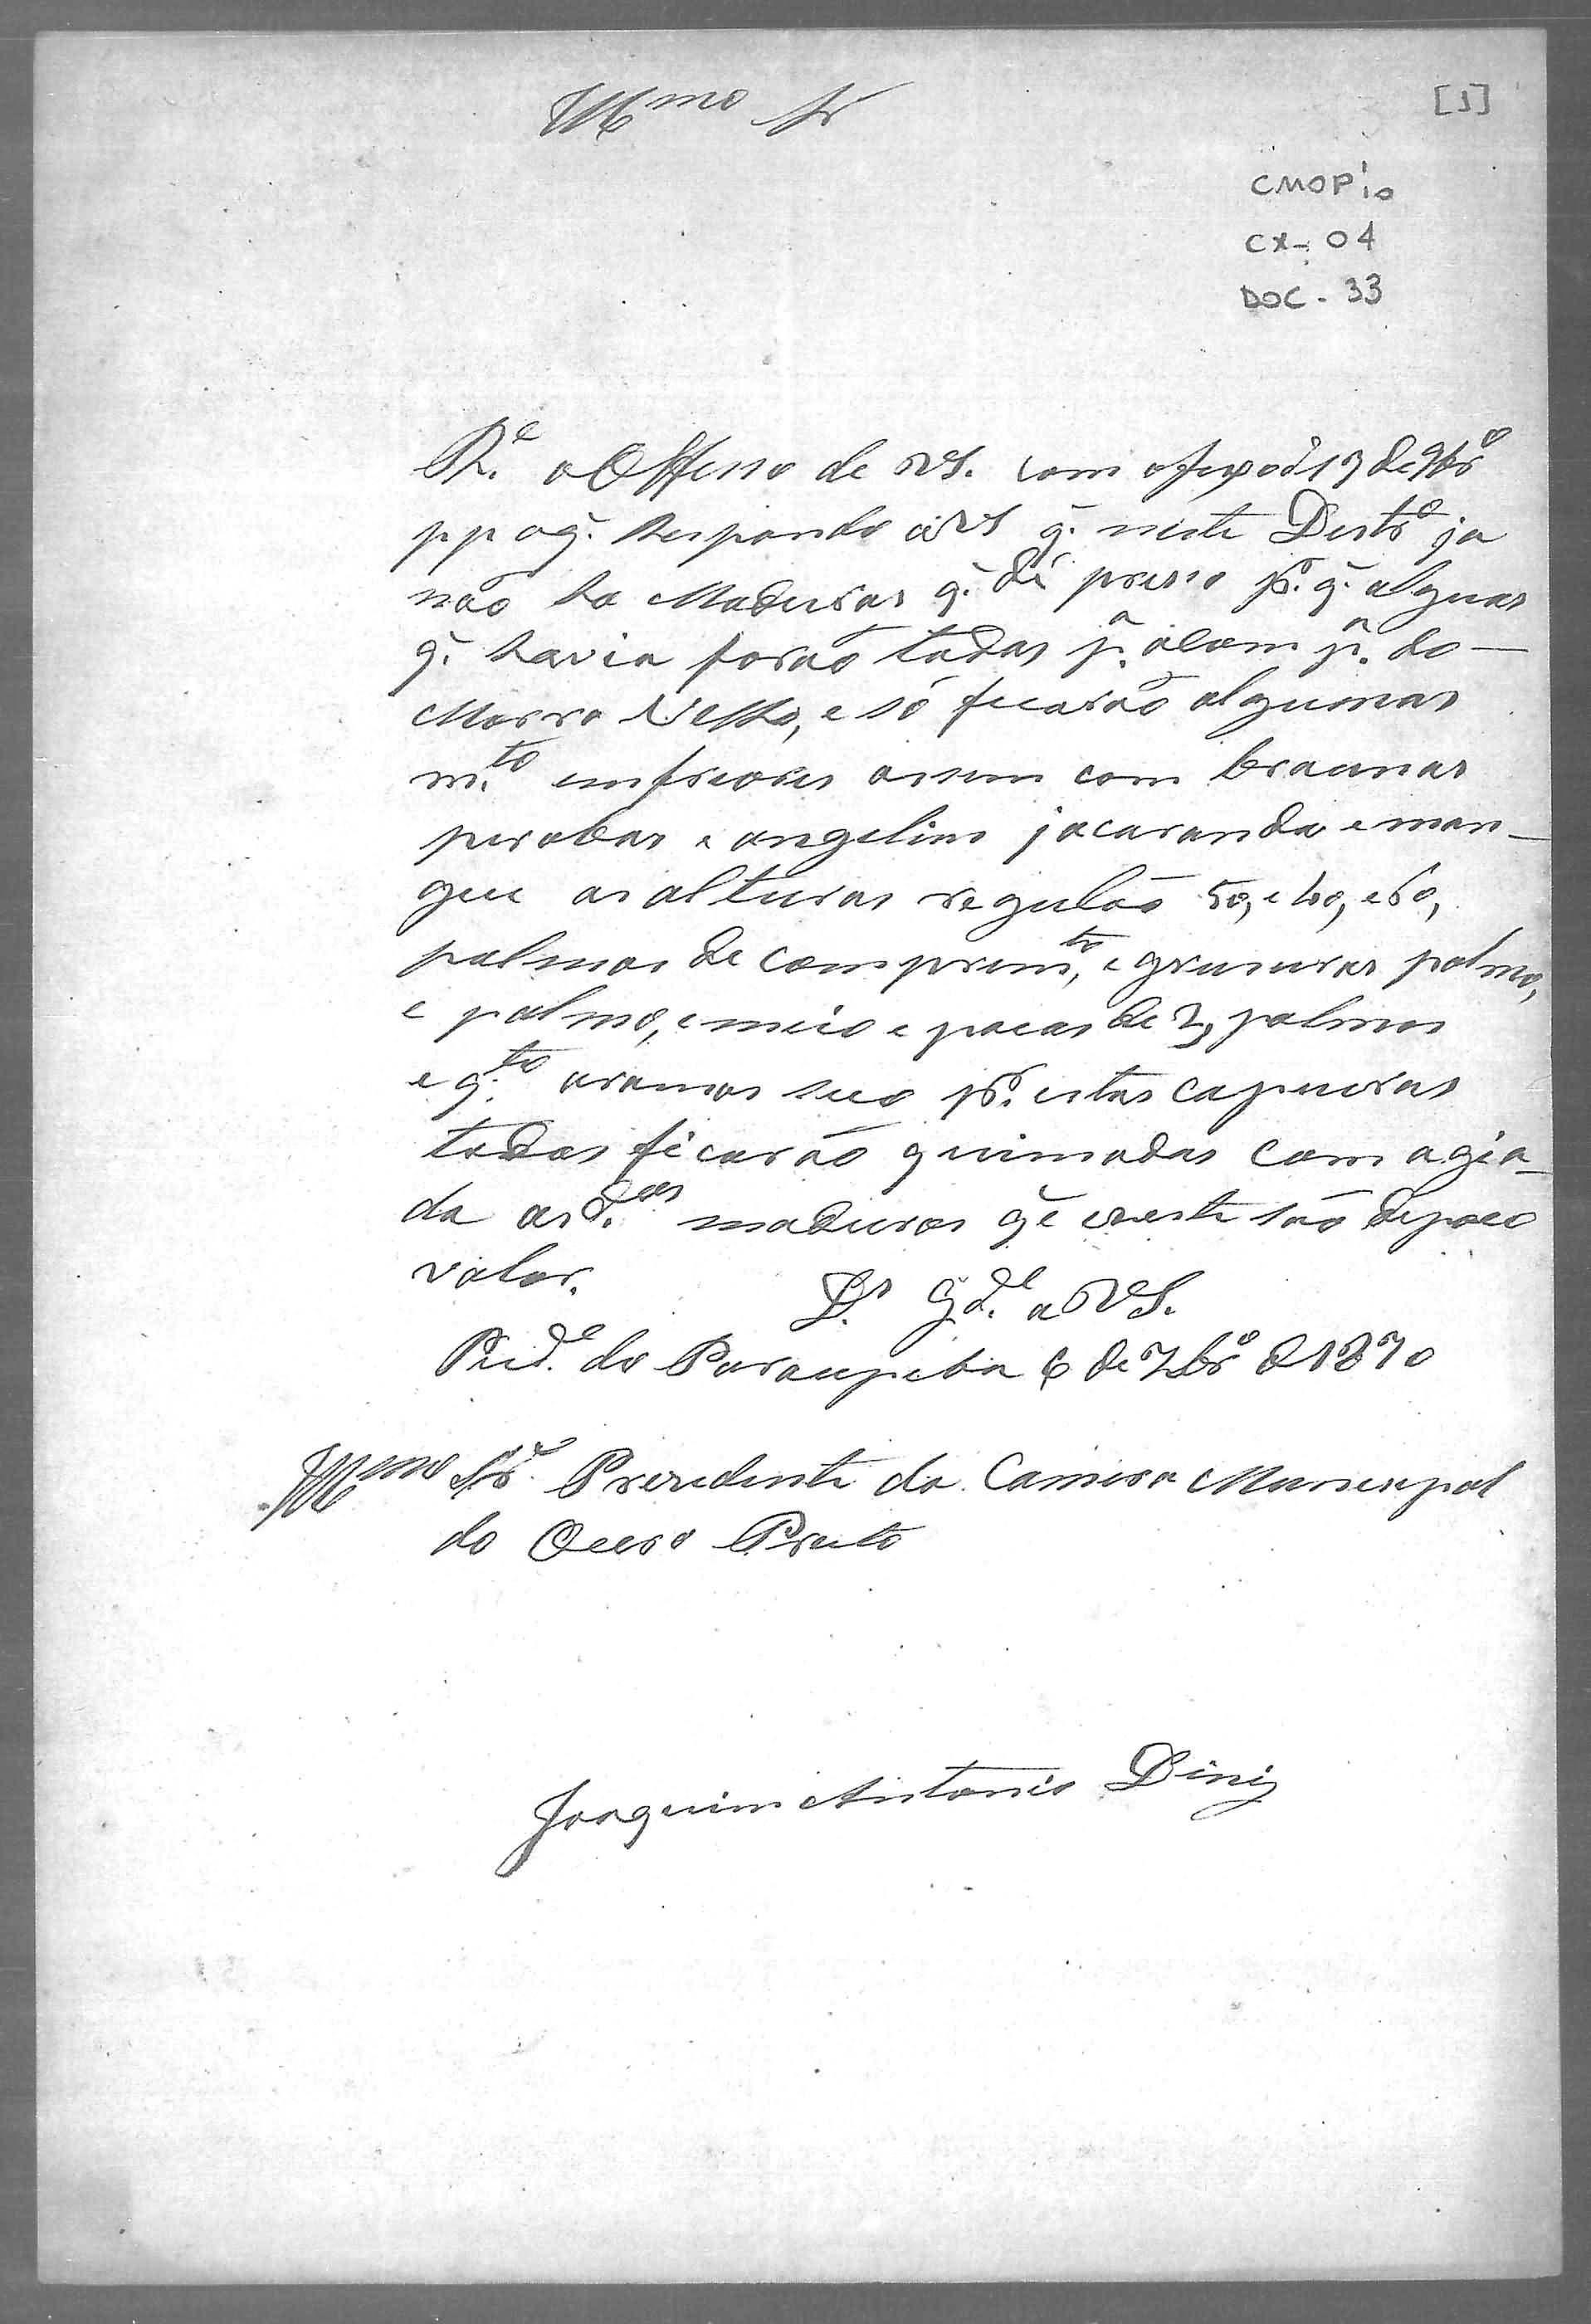 Illmo Sr
[1]
CMOP 10
CX - 04
DOC - 33
R.e o Officio de VS. com o fexo d 17 de 9br.o
pp o q. Respondo a VS q. neste Destr.o ja
não ha Madeiras q. dê preso pr. q. alguas
q. havia forão todas p.a alem p.a do
Morro Velho, e só ficarão algumas
m.to enfriores assim com braunas
perobas e angelins jacaranda e man-
gue as alturas regulão 50, e 40, e 60,
palmos de comprim.to, e grusuras palmo,
e palmo, e meio e pocas de 2, palmos
e q.to aramos seco pr. estas capueiras
todas ficarão queimadas com a gia-
da as d.as madeiras q e ezeste são de poco
valor.
D.s G.de a VS.
Pied.e do Paraupeba 6 de 7br.o d 1870
Illmo Sr. Prezedente da Camera Monesepal
do Ouro Preto
Joaquim Antonio Diniz